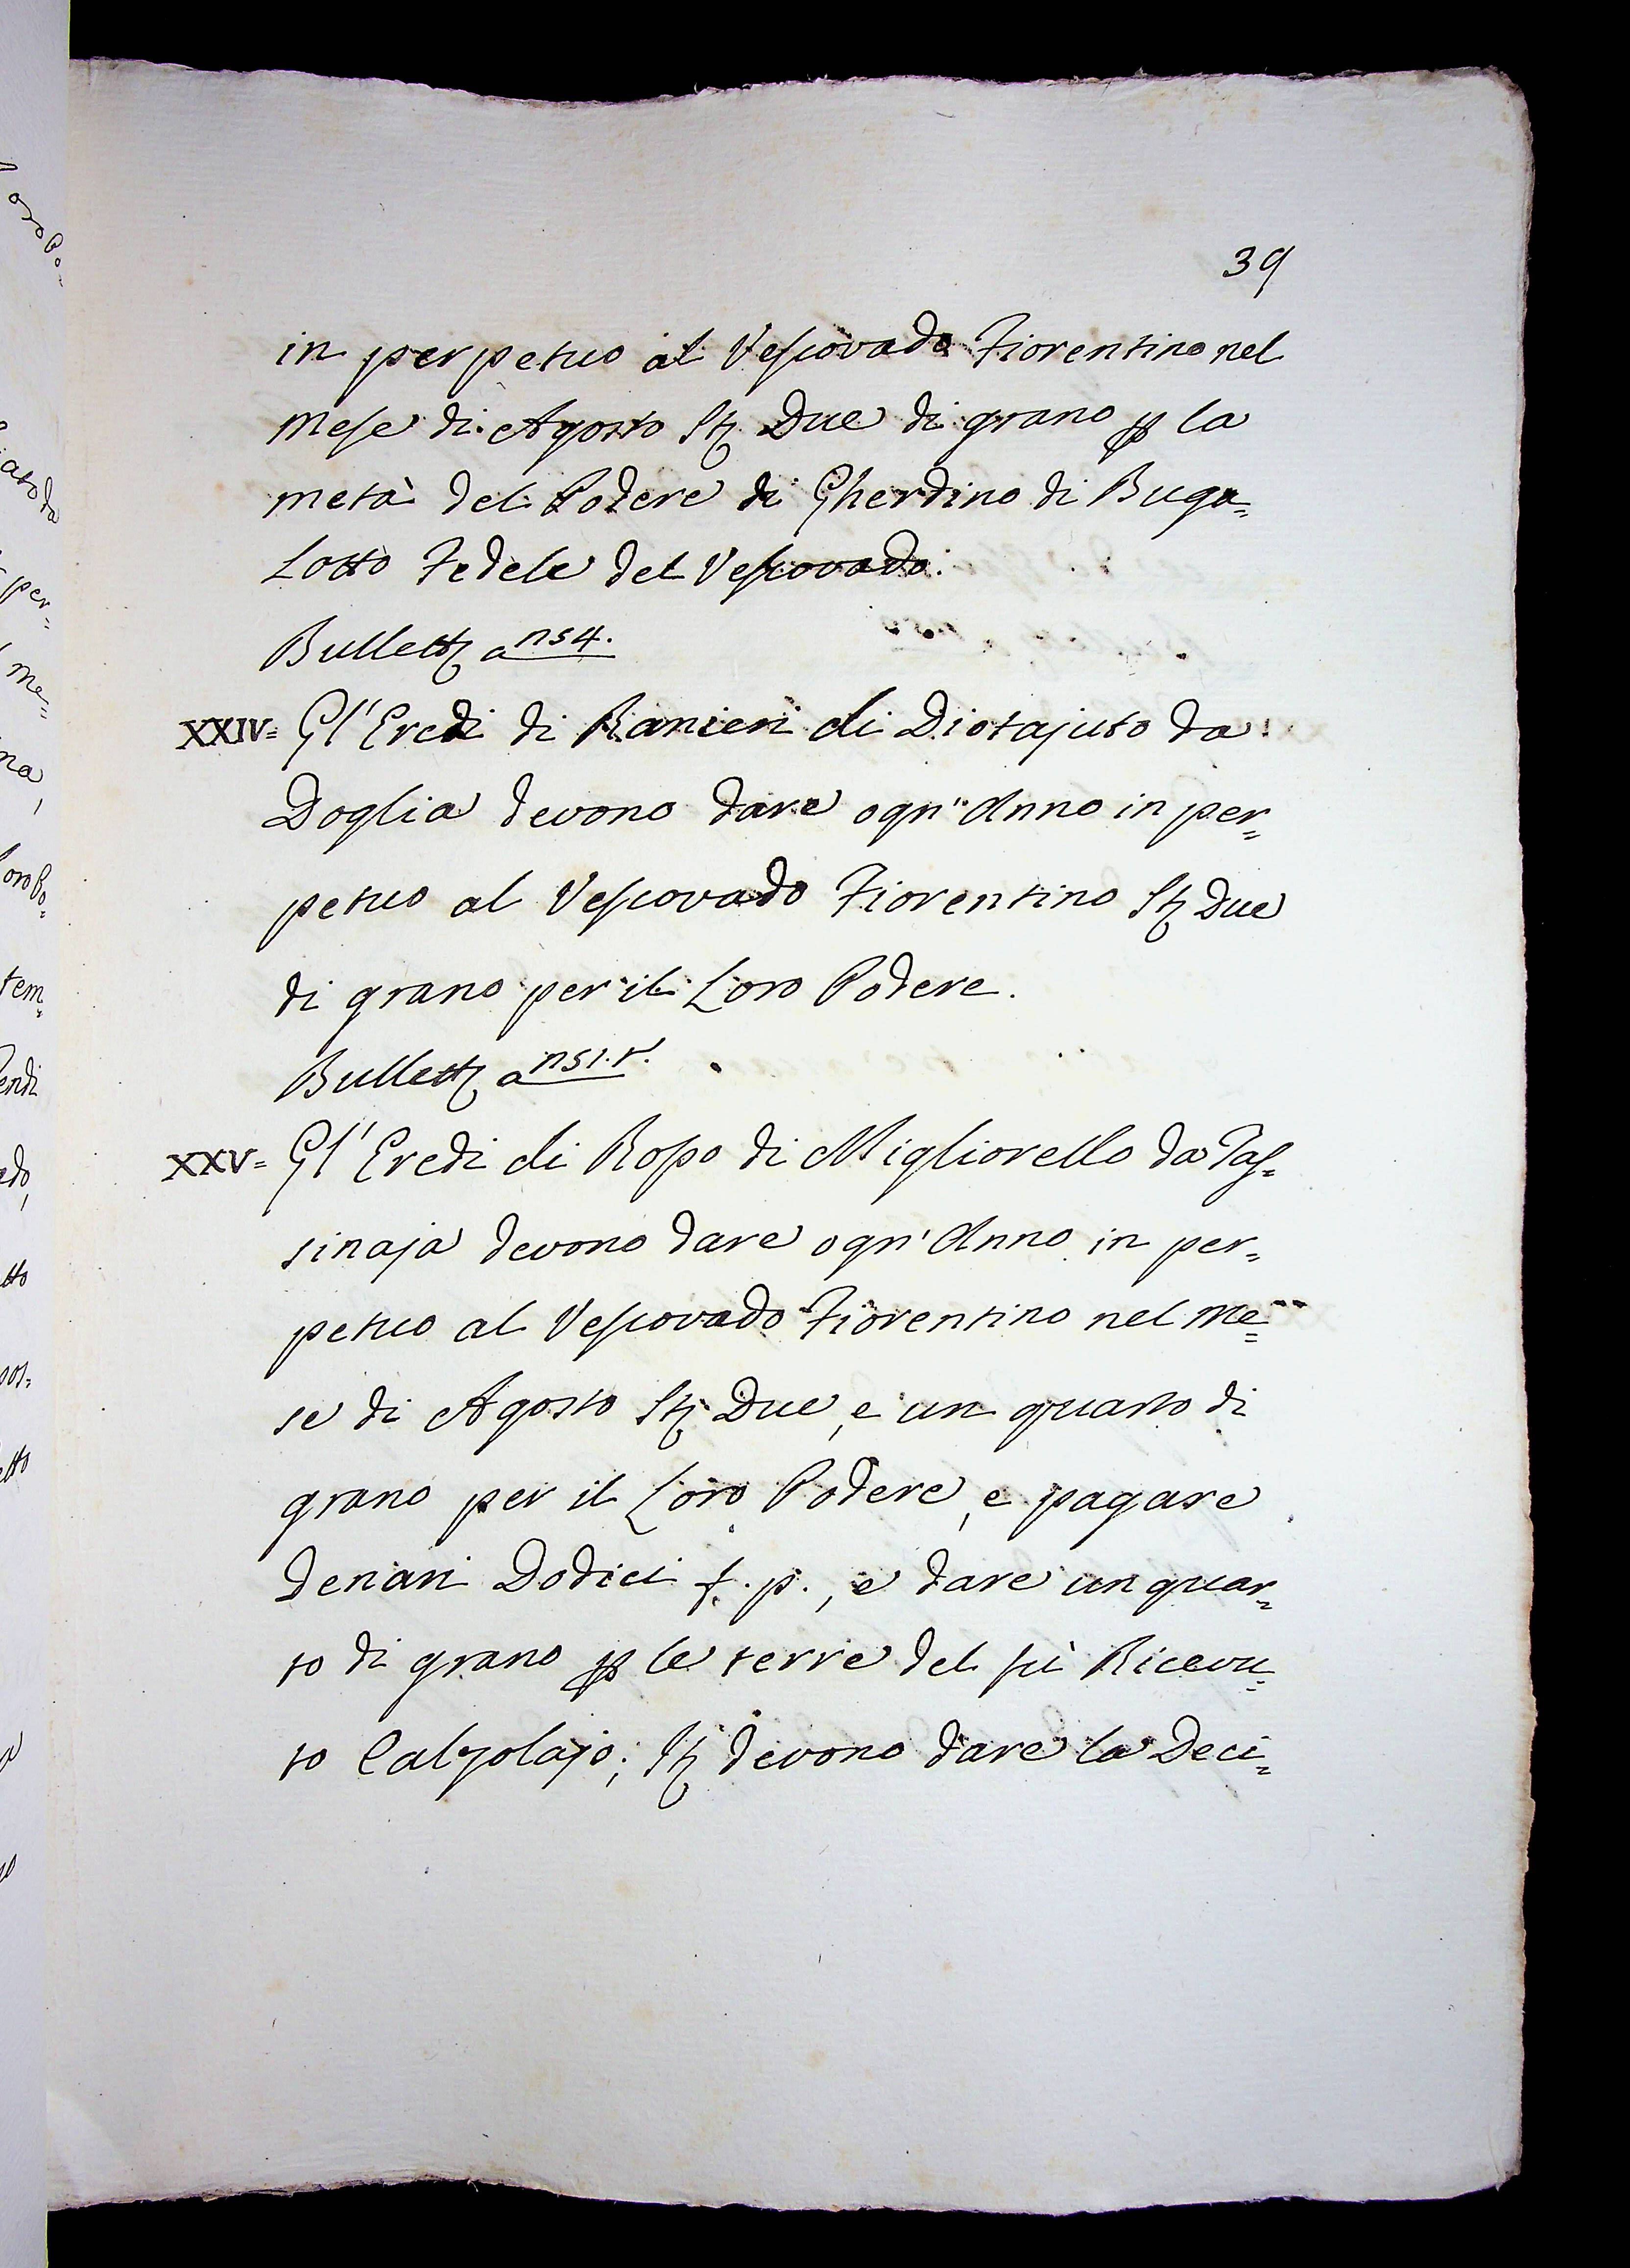 39
in perpetuo al Vescovado Fiorentino nel
mese di Agosto St. Due di grano p la
metà del Podere di Gherdino di Buga=
Lotto Fedele del Vescovado.
Bullett. a n54.
XXIV= Gl'Eredi di Ranieri di Diotajuto da
Doglia devono dare ogn'Anno in per=
petuo al Vescovado Fiorentino St. Due
di grano per il Loro Podere.
Bullett. a n51.r.
XXV= Gl'Eredi di Rosso di Migliorello da Tas=
sinaja devono dare ogn'Anno in per=
petuo al Vescovado Fiorentino nel me=
se di Agosto St. Due, e un quarto di
grano per il Loro Podere, e pagare
Denari Dodici f. p., e dare un quar=
to di grano p le terre del fù Ricevu=
to Calzolajo; It. devono dare la Deci=